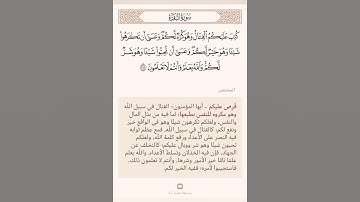 سورة البقرة
كُتِبَ عَلَيْكُمُ ٱلْقِتَالُ وَهُوَ كُرْهٌ لَّكُمْ وَعَسَىٰٓ أَن تَكْرَهُوا۟
شَيْـًٔا وَهُوَ خَيْرٌ لَّكُمْ وَعَسَىٰٓ أَن تُحِبُّوا۟ شَيْـًٔا وَهُوَ شَرٌّ
لَّكُمْ وَٱللَّهُ يَعْلَمُ وَأَنتُمْ لَا تَعْلَمُونَ
المختصر
فُرض عليكم - أيها المؤمنون - القتال في سبيل الله
وهو مكروه للنفس بطبعها؛ لما فيه من بذل المال
والنفس، ولعلكم تكرهون شيئًا وهو في الواقع خير
ونفع لكم؛ كالقتال في سبيل الله، فمع عظم ثوابه
فيه النصر على الأعداء ورفع كلمة الله، ولعلكم
تحبون شيئًا وهو شر ووبال عليكم؛ كالتخلف عن
الجهاد، فإن فيه الخذلان وتسلط الأعداء، والله يعلم
علمًا تامًّا خير الأمور وشرها، وأنتم لا تعلمون ذلك،
فاستجيبوا لأمره؛ ففيه الخير لكم.